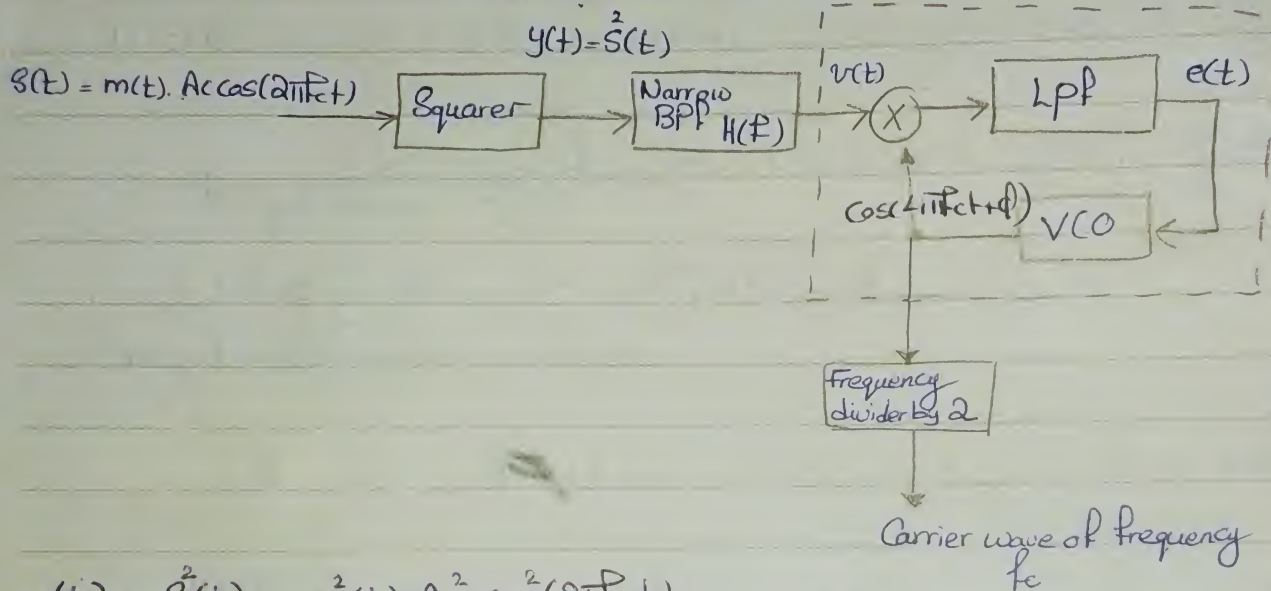 y(t)=S²(t)
S(t) = m(t). Ac cos(2πfct)
Squarer
Narrow
BPf H(f)
v(t)
X
Lpf
e(t)
Cos(4πfct+φ)
VCO
Frequency
divider by 2
Carrier wave of frequency
fc